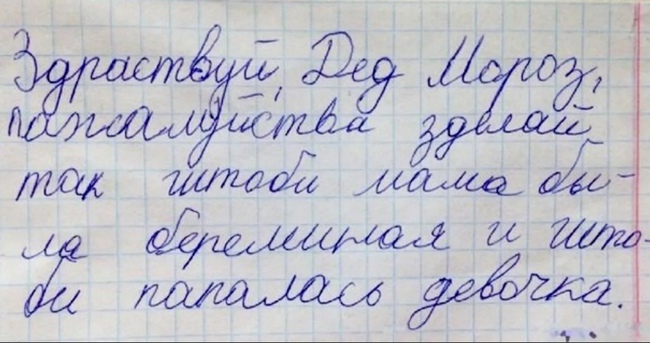 Здраствуй, Дед Мороз,
пажалуйства зделай
так штоби мама бы-
ла беременая и што-
би папалась девочка.